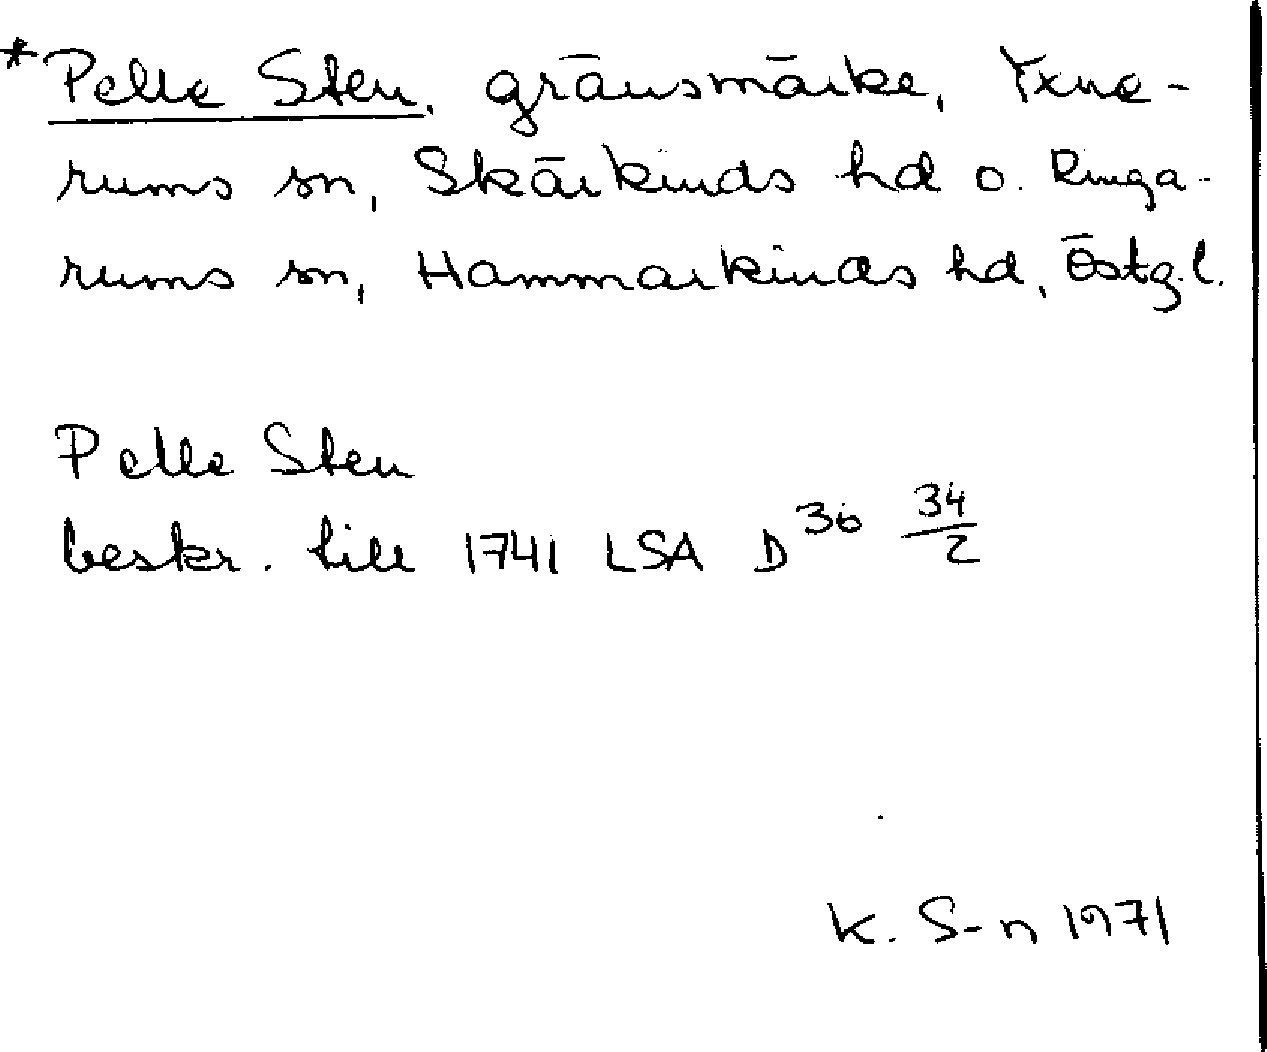 *Pelle Sten, gränsmärke, Yxne-
rums sn, Skärkinds hd o. Ringa-
rums sn, Hammarkinds hd, Östg.l.
Pelle Sten
beskr. till 1741 LSA D 36 34/2
K. S-n 1971